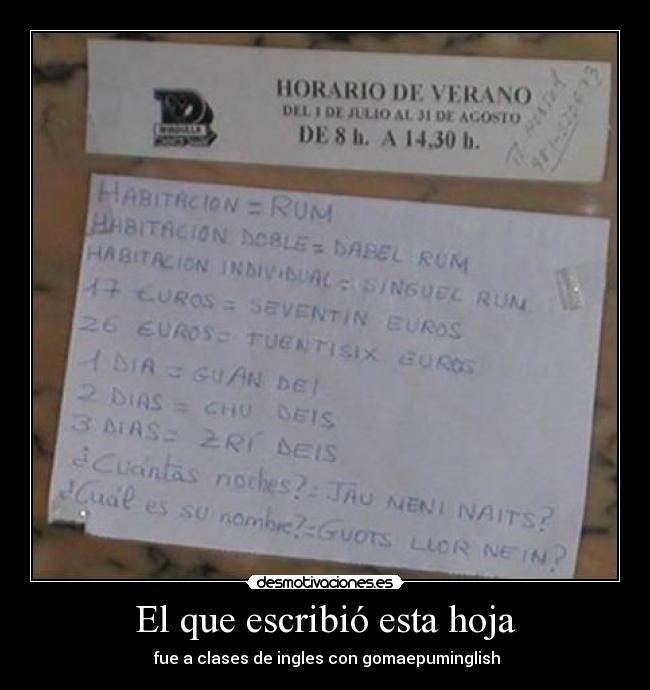 HORARIO DE VERANO
DEL 1 DE JULIO AL 31 DE AGOSTO
DE 8 h. A 14,30 h.
HABITACION = RUM
HABITACION DOBLE = DABEL RUM
HABITACION INDIVIDUAL = SINGUEL RUM
17 EUROS = SEVENTIN EUROS
26 EUROS = TUENTISIX EUROS
1 DIA = GUAN DEI
2 DIAS = CHU DEIS
3 DIAS = ZRÍ DEIS
¿Cuántas noches? = JAU MENI NAITS?
¿Cuál es su nombre? = GUOTS LLOR NEIN?
desmotivaciones.es
El que escribió esta hoja
fue a clases de ingles con gomaepuminglish